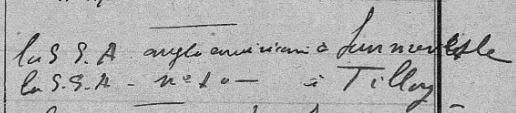 la S.S.A anglo américaine à Sommereille
la S.S.A - n° 10 — à Tilloy